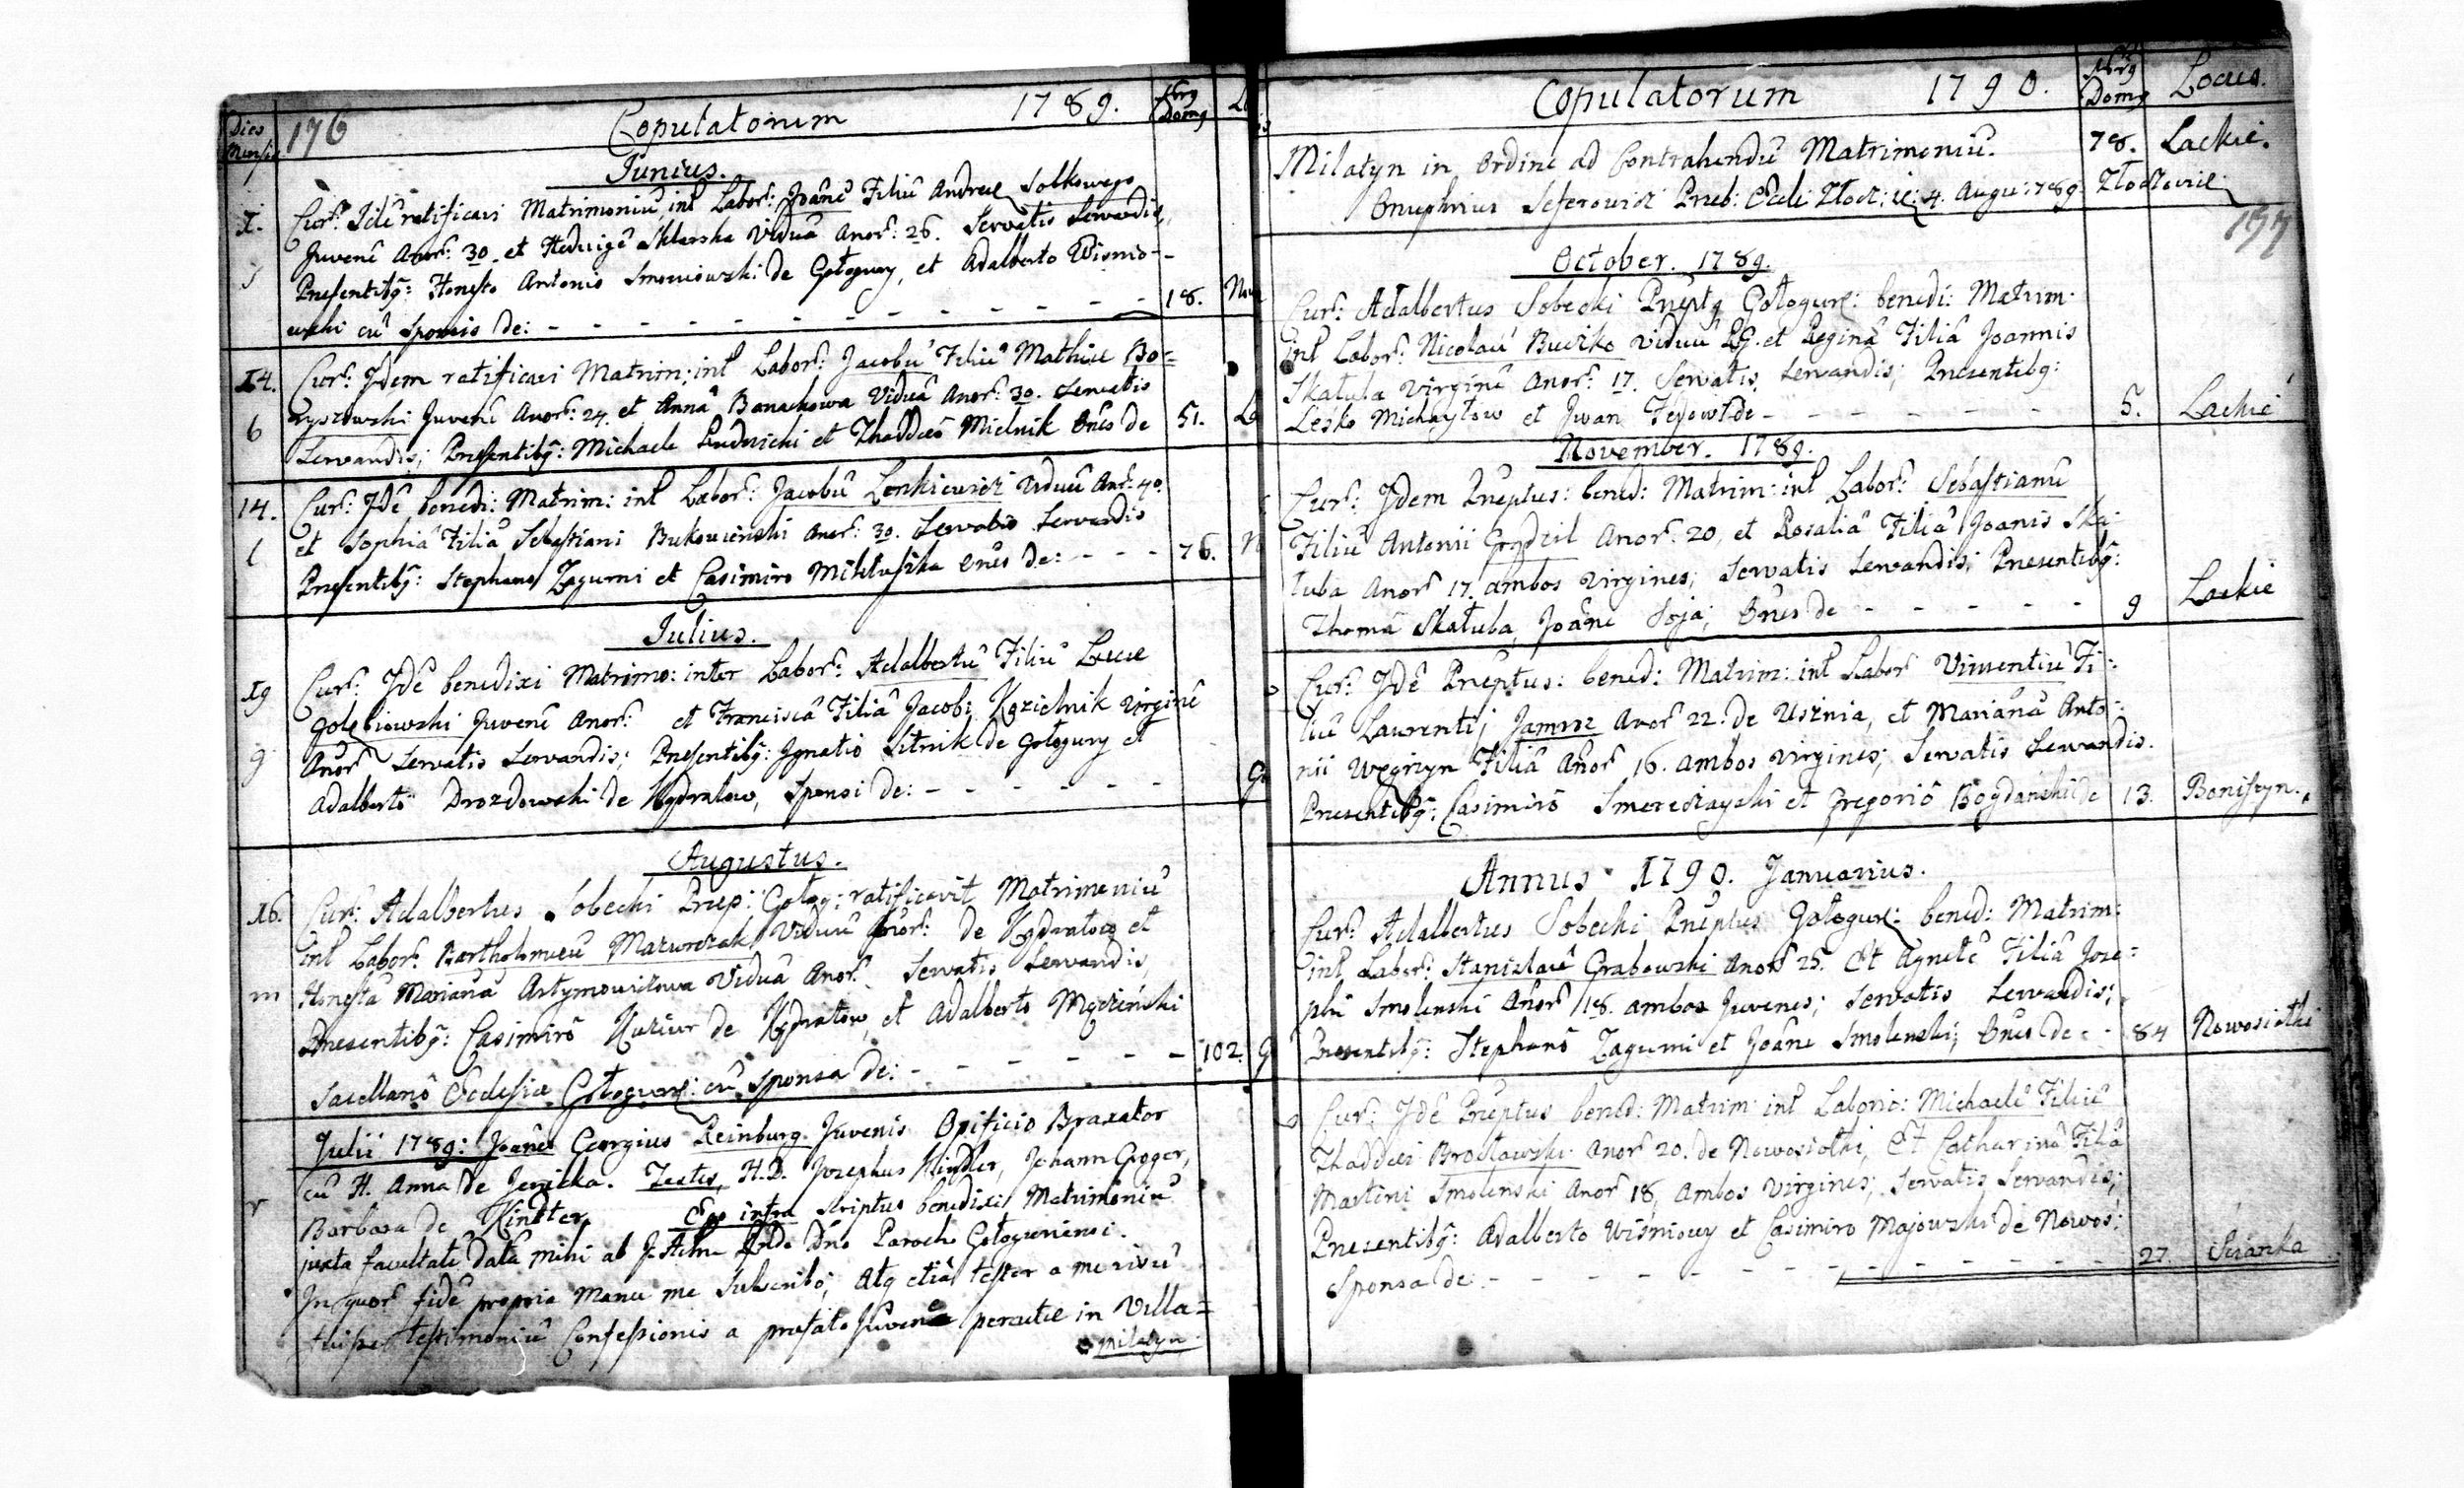 Dies Mensis 176 Copulatorum 1789. Nrg Domg
Junius.
1. Curr: Idê ratificavi Matrimoniû, int Labor: Joânê Filiû Andreæ Solkowego
Juvenê Anor: 30. et Heduigê Sklarska Viduâ Anor: 26. Servatis Servandis,
Presentibg: Honesto Antonio Smoniowski de Gołogury, et Adalberto Wisnio-
wski cû Sponsis de: - - - 18.
14. Cur: Idem ratificavi Matrim: int Labor: Jacobû Filiû Mathiæ Bo=
6 ryszowski Juvenê Anor: 24. et Annâ Banachowa Viduâ Anor: 30. Servatis
Servandis; Presentibg: Michaele Rudnicki et Thaddeô Mielnik Ônês de 51.
14. Cur: Idê benedi: Matrim: int Labor: Jacobû Lenkiewicz Viduû Anr: 40.
et Sophiâ Filiâ Sebastiani Bukowienski Anor: 30. Servatis Servandis
Presentibg: Stephano Zagurni et Casimiro Mikluszka Ônes de: - - - 76.
Julius.
19 Cur: Idê benedixi Matrimo: inter Labor: Adalbertû Filiû Lucæ
Golębiowski Juvenê Anor: et Franciscâ Filiâ Jacobi Kozielnik Virginê
9 Anor Servatis Servandis; Presentibg: Ignatio Sitnik de Gołogury et
Adalbertô Drozdowski de Kądratow, Sponsi de: - - - - - -
Augustus.
16. Cur: Adalbertus Sobecki Præp: Gołog: ratificavit Matrimoniû
int Labor: Bartholomeû Mazurczak Viduû Anor: de Kądratow et
m Honestâ Mariânâ Artymowiczowa Viduâ Anor: Servatis Servandis,
Presentibg: Casimirô Kuziur de Kądratow, et Adalberto Mączinski
Sacellanô Ecclesiæ Gołoguræ: cû Sponsa de: - - - - 102.
Julii 1789: Joânes Georgius Reinburg Juvenis Opificio Braxator
cû H. Anna de Jenicka. Testes, H.D. Josephus Kindler, Johann Groger,
Barbara de Kindler. Ego infra scriptus benedixi Matrimoniû
juxta facultatê datâ mihi ab Dno Parocho Gołoguriensi.
In quor fidê propria manu me Subscribo; Atq etiâ testor a me visû
testimoniû Confessionis a prefato Juvene peractæ in Villa=
Milatyn.
Copulatorum 1790. Nrg Domg Locus.
Milatyn in Ordine ad Contrahendû Matrimoniû. 78. Lackie.
Onuphrius Seferowicz Preb: Eccli Złocz: 4. Augu: 789. Złoczoviæ
177
October. 1789.
Cur: Adalbertus Sobecki Præptg Gołoguræ: benedi: Matrim:
int Labor: Nicolaû Buczko Viduû et Reginâ Filiâ Joannis
Skatuba Virginê Anor: 17. Servatis Servandis; Presentibg:
Lesko Michayłow et Jwan Fedow de - - - - - - 5. Lackie
November. 1789.
Cur: Idem Præptus: bened: Matrim: int Labor: Sebastianû
Filiû Antonii Grydzil Anor: 20, et Rosaliâ Filiâ Joanis Ska-
tuba Anor 17. ambos Virgines; Servatis Servandis; Presentibg:
Thomâ Skatuba, Joâne Soja; Ônes de - - - - - 9 Lackie
Cur: Idê Præptus: bened: Matrim: int Labor Vincentiû Fi-
liû Laurentij Jamroz Anor 22. de Usznia, et Mariânâ Anto-
nii Węgrzyn Filiâ Anor 16. ambos Virgines; Servatis Servandis.
Presentibg: Casimirô Smereczayski et Gregoriô Bogdanski de 13. Boniszyn.
Annus 1790. Januarius.
Cur: Adalbertus Sobecki Præptus Gołoguræ: bened: Matrim:
int Labor: Stanislaû Grabowski Anor 25. Et Agnetê Filiâ Jose=
phi Smolenski Anor 18. ambos Juvenes; Servatis Servandis;
Presentibg: Stephanô Zagurni et Joâne Smolenski; Ônes de - - 84 Nowosiołki
Cur: Idê Præptus bened: Matrim int Laborio: Michaelê Filiû
Thaddæi Brosławski Anor 20. de Nowosiołki, Et Catharinâ Filiâ
Martini Smolenski Anor 18, ambos Virgines; Servatis Servandis;
Presentibg: Adalberto Wisniowy et Casimiro Majowski de Nowos:
Sponsa de - - - - - - 27. Scianka